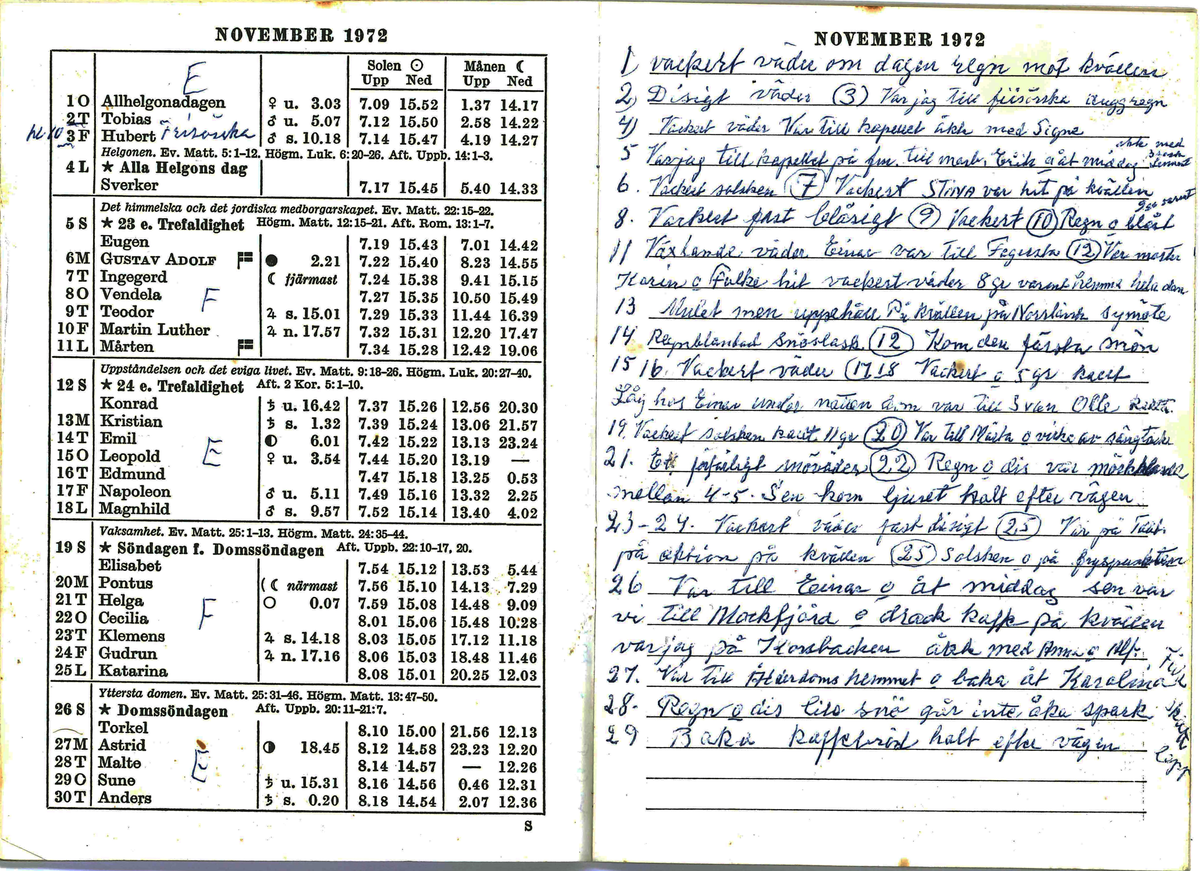 NOVEMBER 1972
Solen ☉ Månen ☾
Upp Ned Upp Ned
E
1 O Allhelgonadagen ♀ u. 3.03 7.09 15.52 1.37 14.17
2 T Tobias ♂ u. 5.07 7.12 15.50 2.58 14.22
kl 10 3 F Hubert Frisörska ♂ s. 10.18 7.14 15.47 4.19 14.27
Helgonen. Ev. Matt. 5:1-12. Högm. Luk. 6:20-26. Aft. Uppb. 14:1-3.
4 L ★ Alla Helgons dag
Sverker 7.17 15.45 5.40 14.33
Det himmelska och det jordiska medborgarskapet. Ev. Matt. 22:15-22.
5 S ★ 23 e. Trefaldighet Högm. Matt. 12:15-21. Aft. Rom. 13:1-7.
Eugen 7.19 15.43 7.01 14.42
6 M GUSTAV ADOLF ● 2.21 7.22 15.40 8.23 14.55
7 T Ingegerd ☾ fjärmast 7.24 15.38 9.41 15.15
8 O Vendela F 7.27 15.35 10.50 15.49
9 T Teodor ♃ s. 15.01 7.29 15.33 11.44 16.39
10 F Martin Luther ♃ n. 17.57 7.32 15.31 12.20 17.47
11 L Mårten 7.34 15.28 12.42 19.06
Uppståndelsen och det eviga livet. Ev. Matt. 9:18-26. Högm. Luk. 20:27-40.
12 S ★ 24 e. Trefaldighet Aft. 2 Kor. 5:1-10.
Konrad ♄ u. 16.42 7.37 15.26 12.56 20.30
13 M Kristian ♄ s. 1.32 7.39 15.24 13.06 21.57
14 T Emil ◐ 6.01 7.42 15.22 13.13 23.24
15 O Leopold E ♀ u. 3.54 7.44 15.20 13.19 —
16 T Edmund 7.47 15.18 13.25 0.53
17 F Napoleon ♂ u. 5.11 7.49 15.16 13.32 2.25
18 L Magnhild ♂ s. 9.57 7.52 15.14 13.40 4.02
Vaksamhet. Ev. Matt. 25:1-13. Högm. Matt. 24:35-44.
19 S ★ Söndagen f. Domssöndagen Aft. Uppb. 22:10-17, 20.
Elisabet 7.54 15.12 13.53 5.44
20 M Pontus (☾ närmast 7.56 15.10 14.13 7.29
21 T Helga ○ 0.07 7.59 15.08 14.48 9.09
22 O Cecilia F 8.01 15.06 15.48 10.28
23 T Klemens ♃ s. 14.18 8.03 15.05 17.12 11.18
24 F Gudrun ♃ n. 17.16 8.06 15.03 18.48 11.46
25 L Katarina 8.08 15.01 20.25 12.03
Yttersta domen. Ev. Matt. 25:31-46. Högm. Matt. 13:47-50.
26 S ★ Domssöndagen Aft. Uppb. 20:11-21:7.
Torkel 8.10 15.00 21.56 12.13
27 M Astrid ◑ 18.45 8.12 14.58 23.23 12.20
28 T Malte E 8.14 14.57 — 12.26
29 O Sune ♄ u. 15.31 8.16 14.56 0.46 12.31
30 T Anders ♄ s. 0.20 8.18 14.54 2.07 12.36
S
NOVEMBER 1972
1 vackert väder om dagen regn mot kvällen
2, Disigt väder (3) Var jag till frisörska duggregn
4) Vackert väder Var till kapellet åkte med Signe
5 Var jag till kapellet på fm. till Erik o åt middag åkte med
6. Vackert solsken (7) Vackert STINA var hit på kvällen
8. Vackert fast blåsigt (9) Vackert (10) Regn o blåst
11 Växlande väder Einar var till Fagersta (12) Var
Karin o Falke hit vackert väder 8 gr varmt hemma hela dan
13 Mulet men uppehåll På kvällen på Norslunds symöte
14 Regnblandad snöslask (12) Kom den första snön
15 16. Vackert väder (17 18 Vackert o 5 gr kallt
Låg hos Einar under natten dom var till Svan Olle
19. Vackert solsken kallt 11 gr (20) Var till Märta o
21. Ett förfärligt snöväder (22) Regn o dis var
mellan 4-5. Sen kom ljuset halt efter vägen
23-24. Vackert väder fast disigt (25) Var på
på aktion på kvällen (25) Solsken o på fryspunkten
26 Var till Einar o åt middag sen var
vi till Mockfjärd o drack kaffe på kvällen
var jag på Korsbacken åkte med Anna o Alf.
27. Var till Ålderdomshemmet o baka åt Karolina
28. Regn o dis lite snö går inte åka spark
29 Baka kaffebröd halt efter vägen